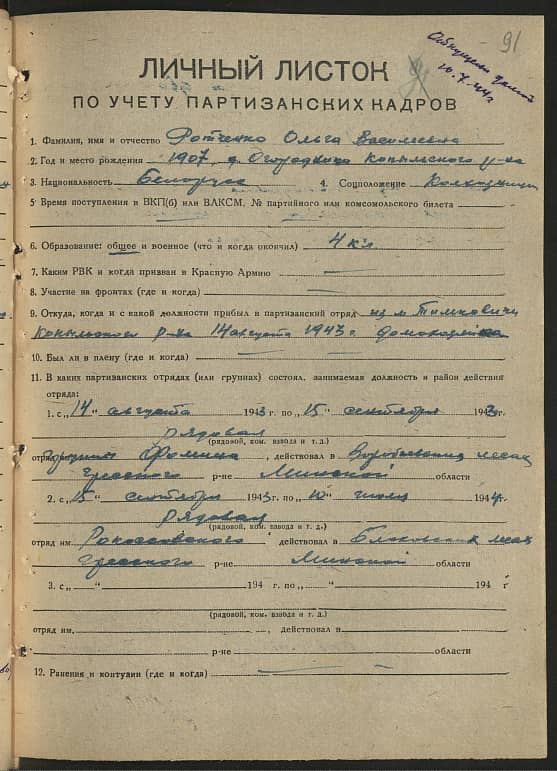 91
10.7.44 г
ЛИЧНЫЙ ЛИСТОК
ПО УЧЕТУ ПАРТИЗАНСКИХ КАДРОВ
1. Фамилия, имя и отчество Ротченко Ольга Васильевна
2. Год и место рождения 1907, д. Огородники Копыльского р-на
3. Национальность Белорусс 4. Соцположение Колхозница
5. Время поступления в ВКП(б) или ВЛКСМ, № партийного или комсомольского билета
6. Образование: общее и военное (что и когда окончил) 4 кл.
7. Каким РВК и когда призван в Красную Армию
8. Участие на фронтах (где и когда)
9. Откуда, когда и с какой должности прибыл в партизанский отряд из м Тимковичи
Копыльского р-на 14 августа 1943 г. домохозяйка
10. Был ли в плену (где и когда)
11. В каких партизанских отрядах (или группах) состоял, занимаемая должность и район действия
отряда:
1. с „14" августа 1943 г. по „15" сентября 1943 г.
рядовая
(рядовой, ком. взвода и т. д.)
отряд Фомина, действовал в лесах
Гресского р-не Минской области
2. с „15" сентября 1943 г. по „10" июля 1944 г.
рядовая
(рядовой, ком. взвода и т. д.)
отряд им. Рокоссовского действовал в лесах
Гресского р-не Минской области
3. с „ " 194 г. по „ " 194 г
(рядовой, ком. взвода и т. д.)
отряд им. , действовал в
р-не области
12. Ранения и контузии (где и когда)